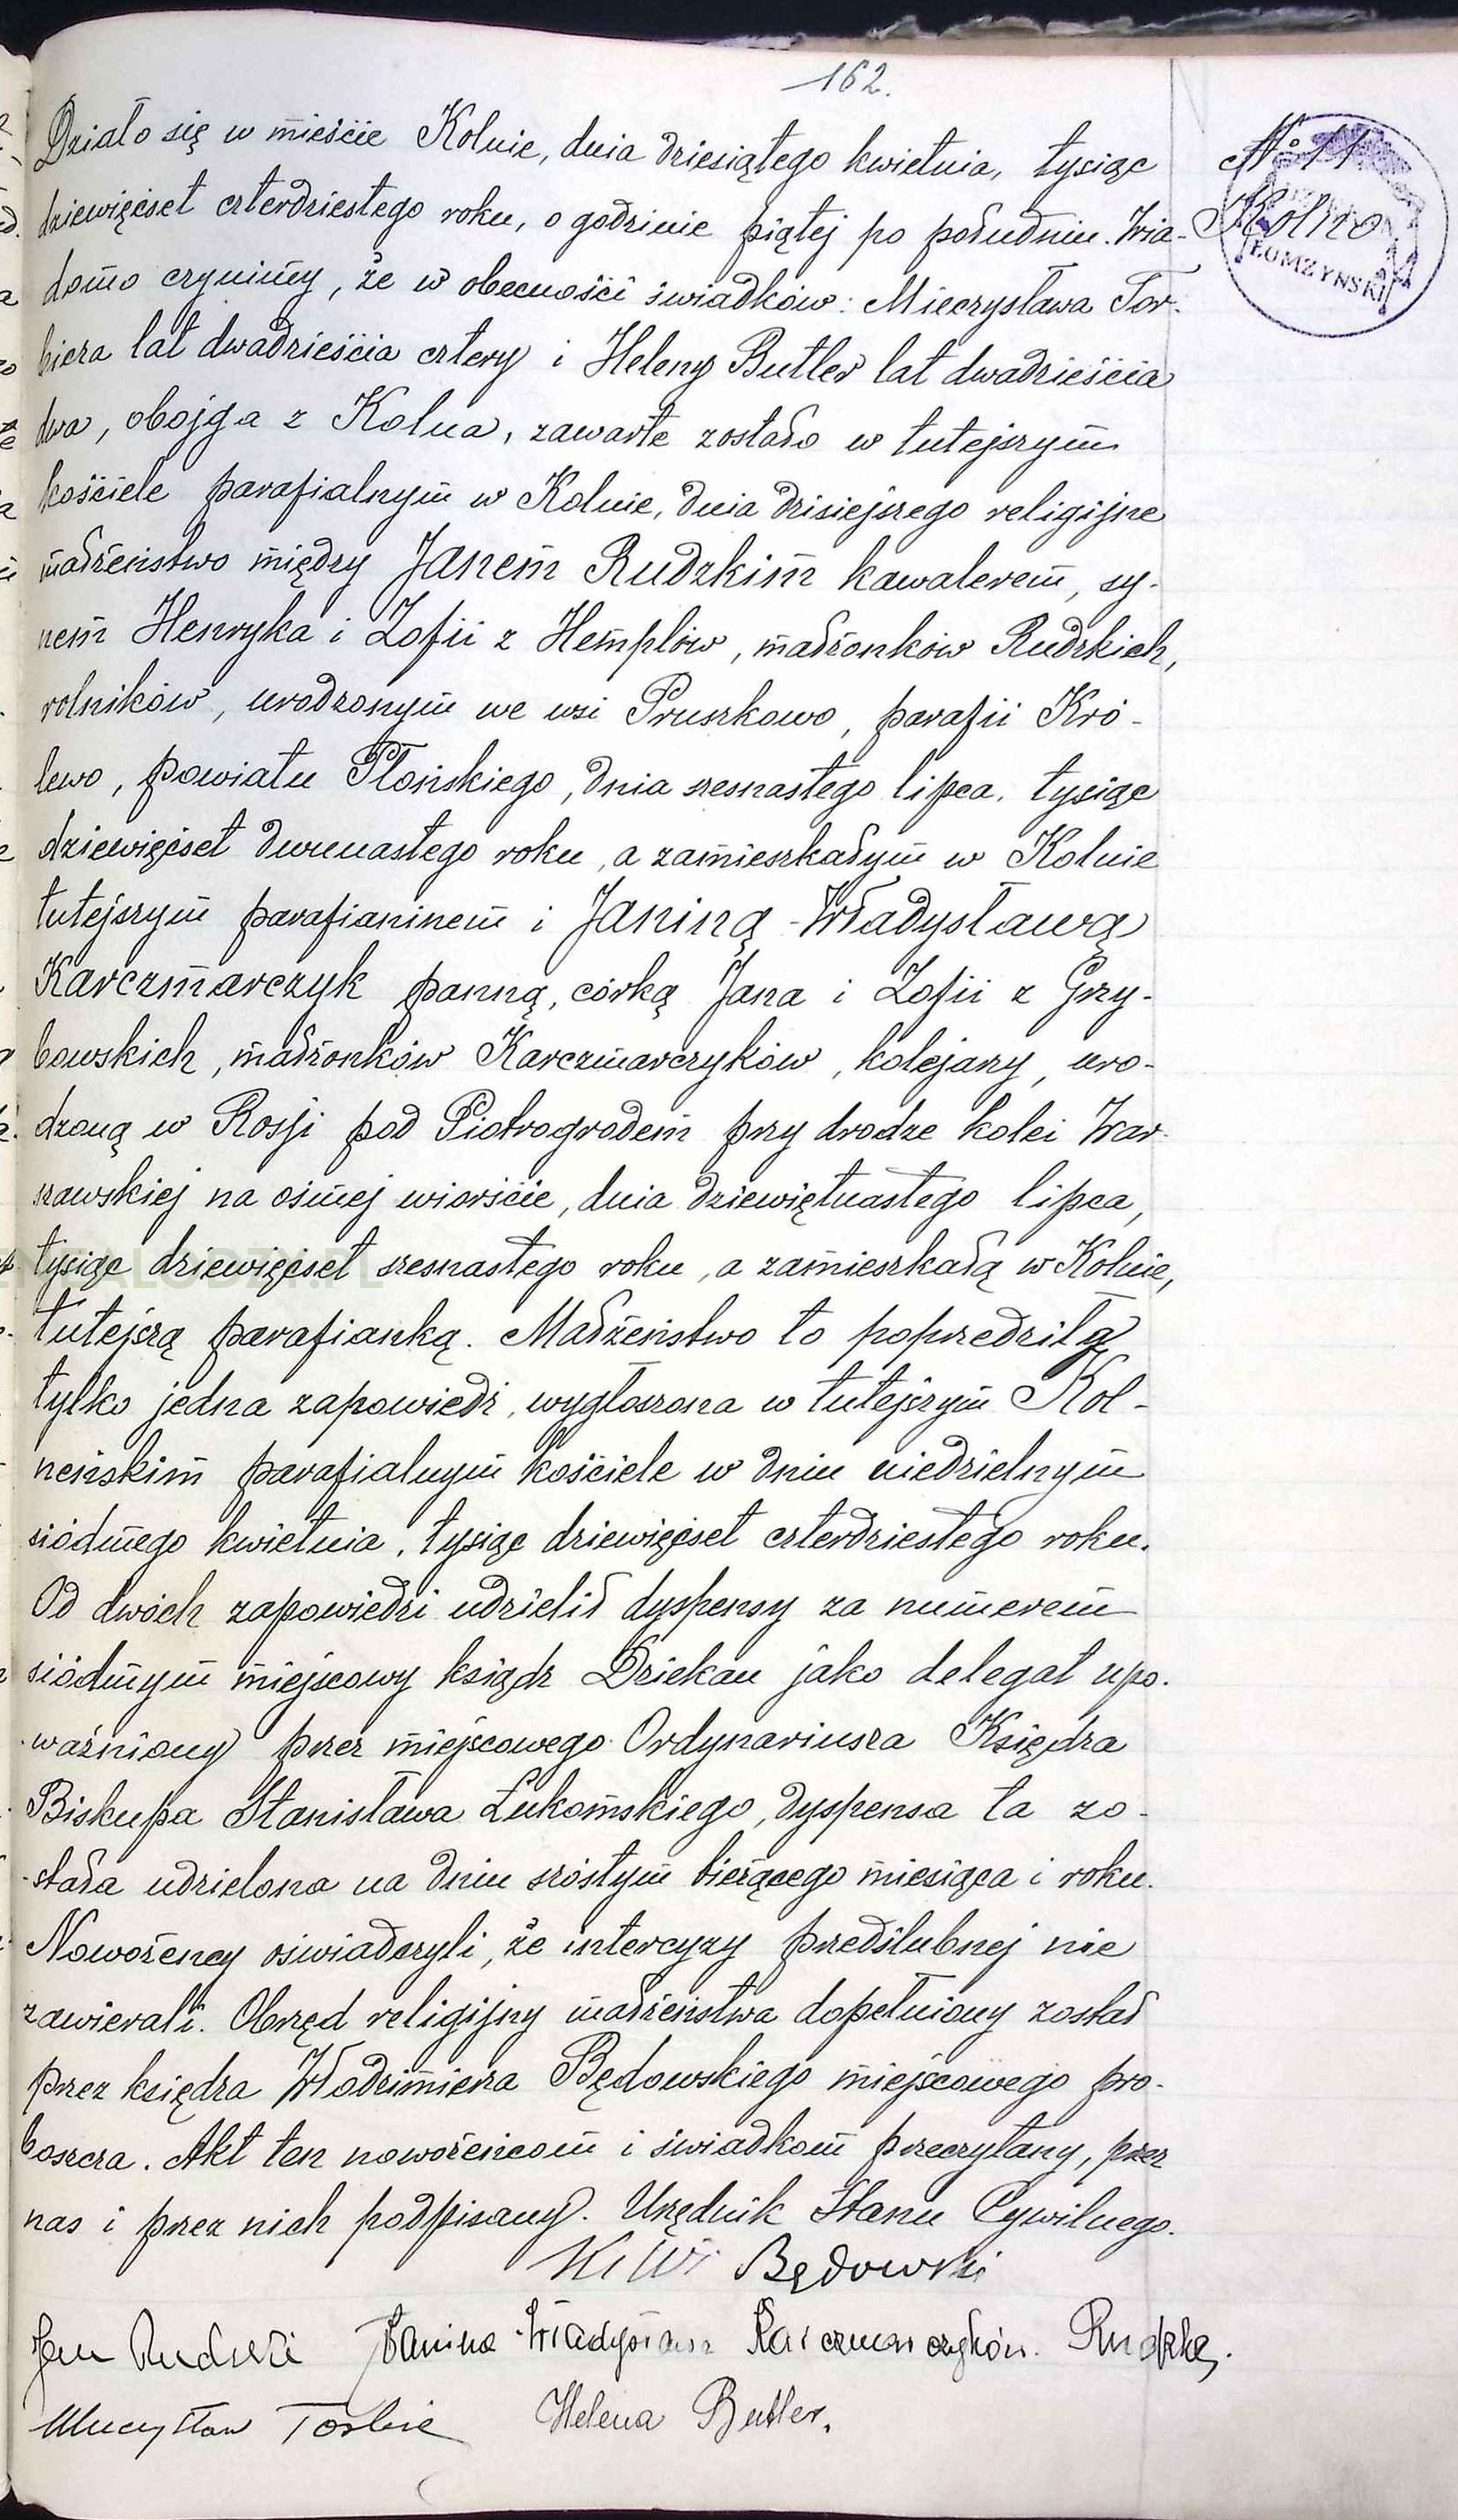 162.
Działo się w mieście Kolnie, dnia dziesiątego kwietnia, tysiąc
dziewięćset czterdziestego roku, o godzinie piątej po południu. Wia-
domo czynimy, że w obecności świadków: Mieczysława Tor-
biera lat dwadzieścia cztery i Heleny Butler lat dwadzieścia
dwa, obojga z Kolna, zawarte zostało w tutejszym
kościele parafialnym w Kolnie, dnia dzisiejszego religijne
małżeństwo między Janem Rudzkim kawalerem, sy-
nem Henryka i Zofii z Hemplów, małżonków Rudzkich,
rolników, urodzonym we wsi Pruszkowo, parafii Kró-
lewo, powiatu Płońskiego, dnia szesnastego lipca, tysiąc
dziewięćset dwunastego roku, a zamieszkałym w Kolnie
tutejszym parafianinem i Janiną-Władysławą
Karczmarczyk panną, córką Jana i Zofii z Grzy-
bowskich, małżonków Karczmarczyków, kolejarzy, uro-
dzoną w Rosji pod Piotrogrodem przy drodze kolei War-
szawskiej na ósmej wiorście, dnia dziewiętnastego lipca,
tysiąc dziewięćset szesnastego roku, a zamieszkałą w Kolnie,
tutejszą parafianką. Małżeństwo to poprzedziła
tylko jedna zapowiedź, wygłoszona w tutejszym Kol-
neńskim parafialnym kościele w dniu niedzielnym
siódmego kwietnia, tysiąc dziewięćset czterdziestego roku.
Od dwóch zapowiedzi udzielił dyspensy za numerem
siódmym miejscowy ksiądz Dziekan jako delegat upo-
ważniony przez miejscowego Ordynariusza Księdza
Biskupa Stanisława Łukomskiego, dyspensa ta zo-
stała udzielona na dniu szóstym bieżącego miesiąca i roku.
Nowożeńcy oświadczyli, że intercyzy przedślubnej nie
zawierali. Obrzęd religijny małżeństwa dopełniony został
przez księdza Włodzimierza Będowskiego miejscowego pro-
boszcza. Akt ten nowożeńcom i świadkom przeczytany, przez
nas i przez nich podpisany. Urzędnik Stanu Cywilnego.
Ks W. Będowski
Jan Rudzki Janina-Władysława Karczmarczyków. Rudzka.
Mieczysław Torbie Helena Butler.
№ 11
Kolno
ŁOMŻYŃSKI